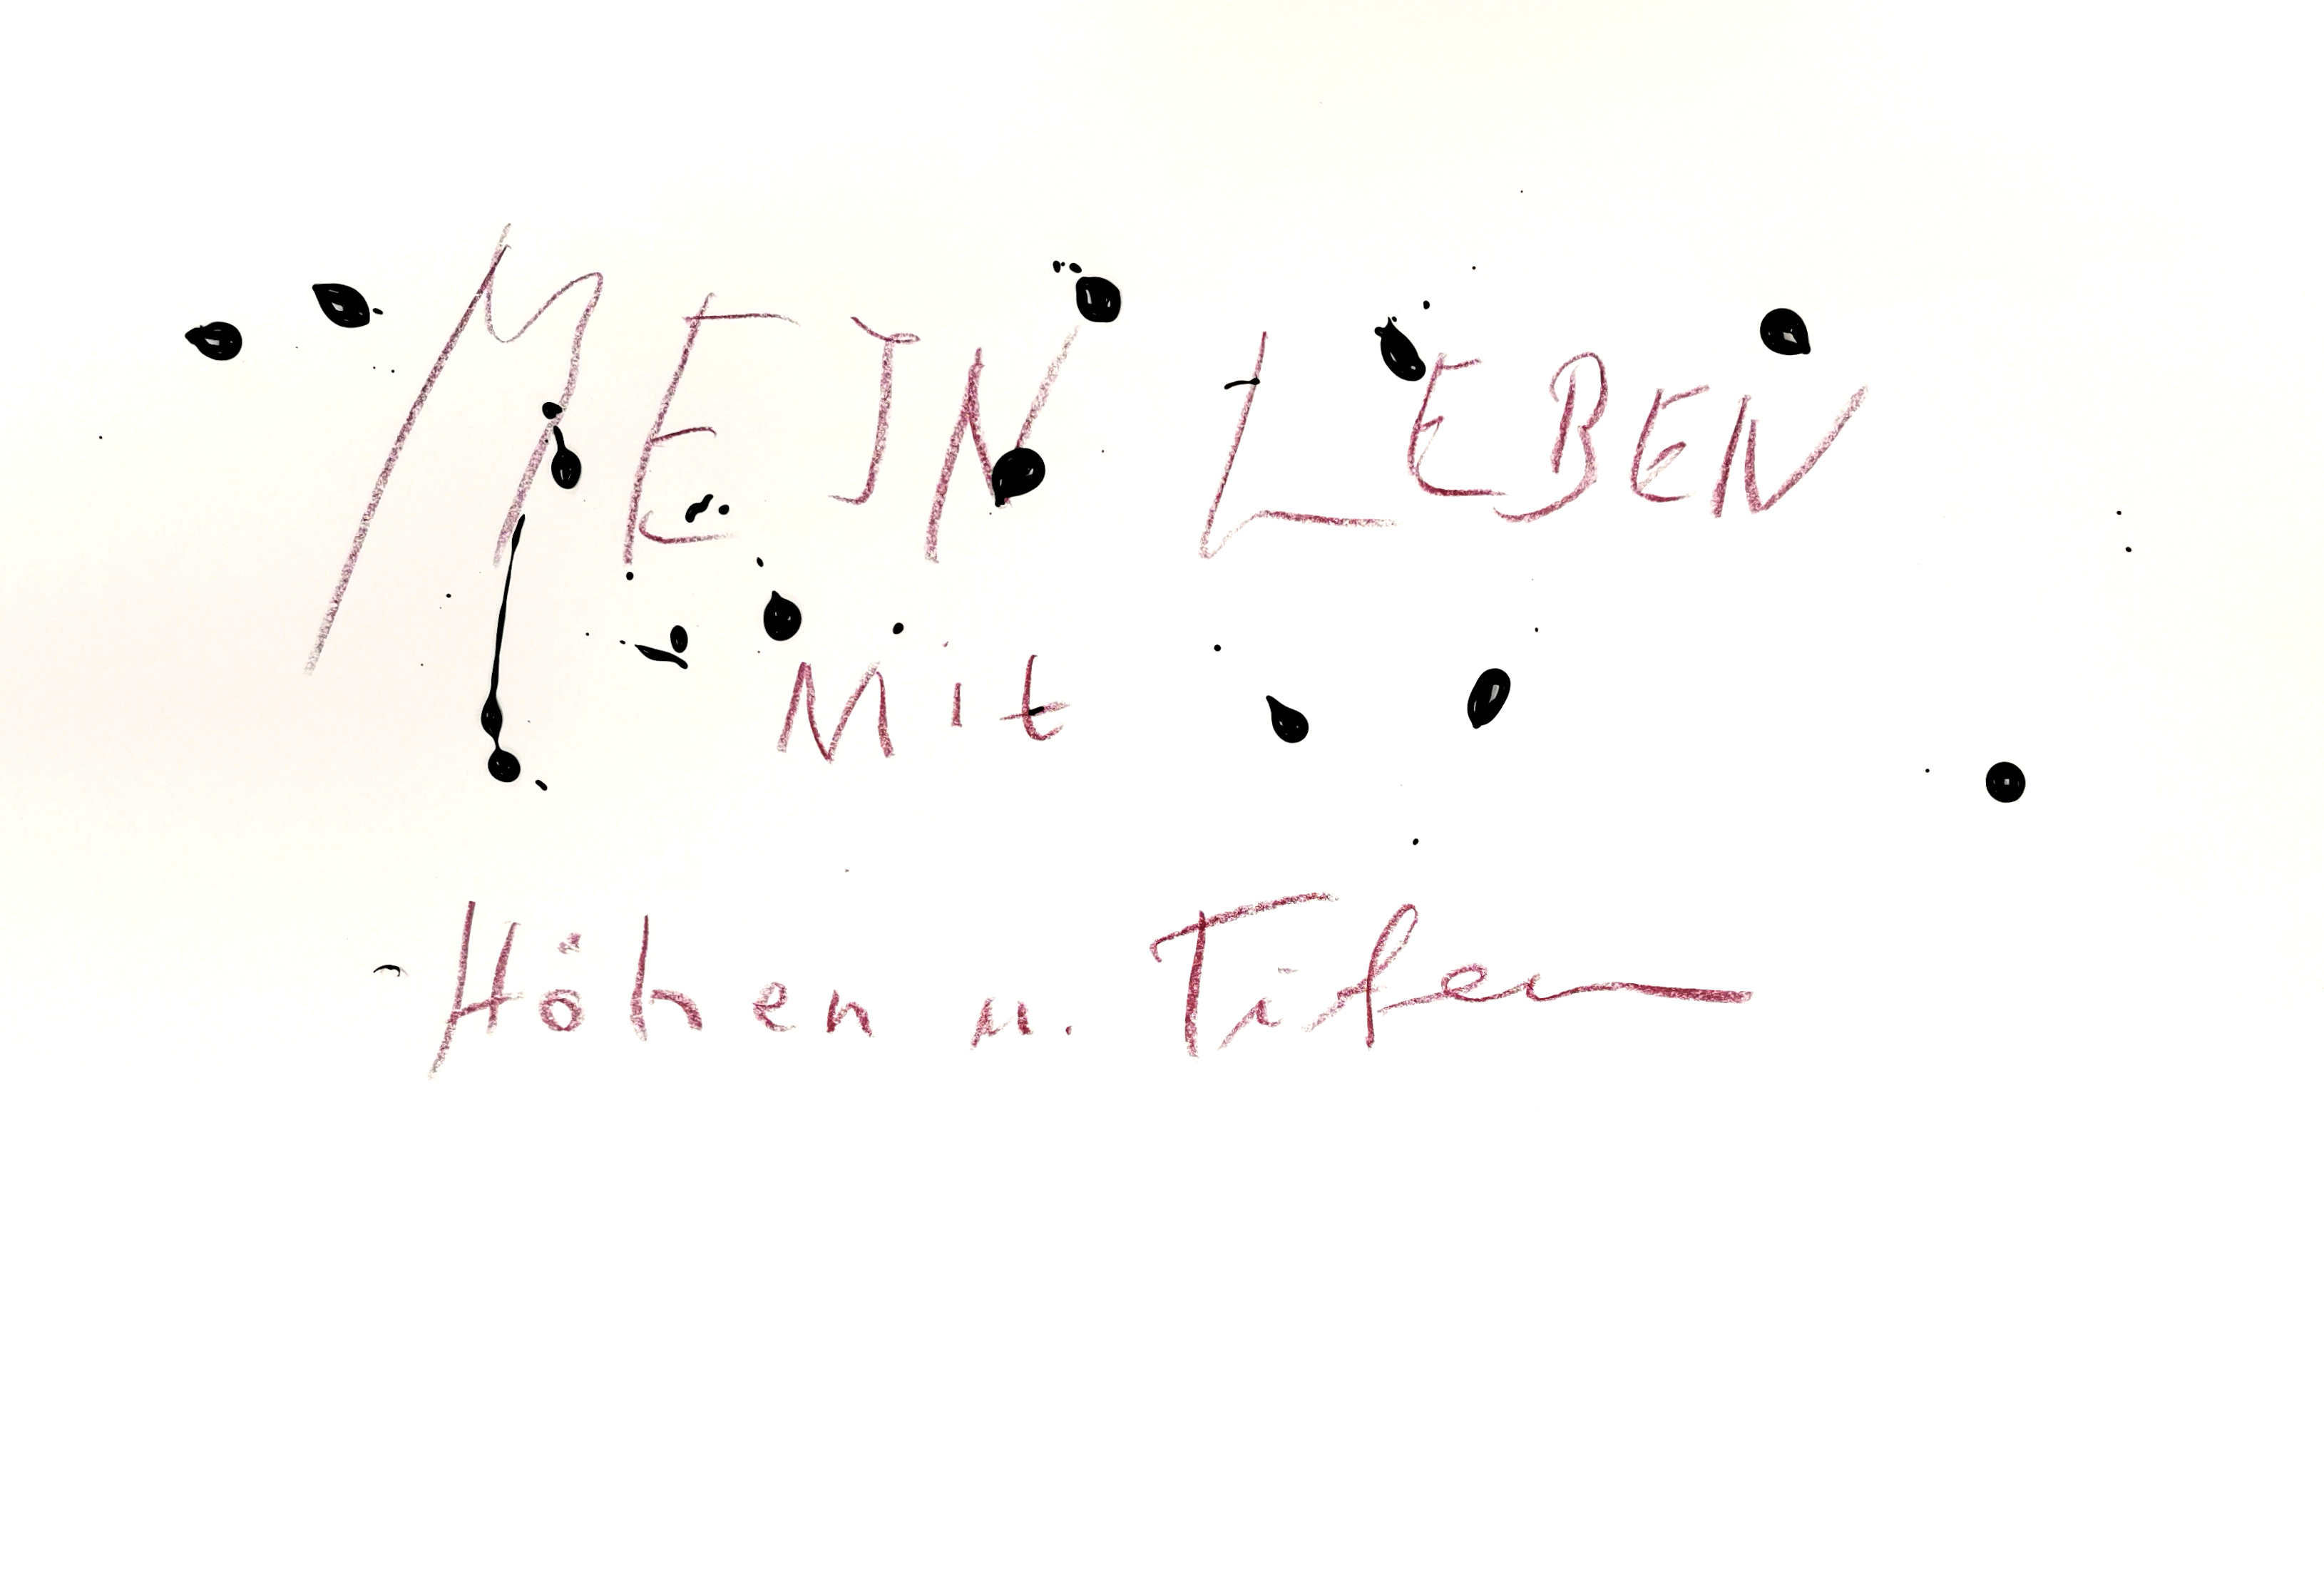 MEIN LEBEN
Mit
Höhen u. Tifen